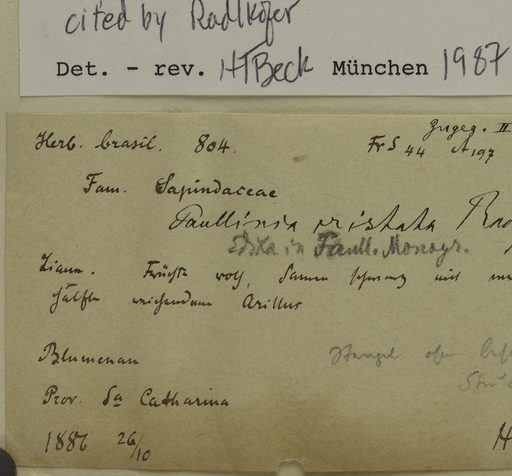 cited by Radlkofer
Det. - rev. HTBeck München 1987
Zugeg. II
Herb. brasil. 804. Fr S 44 A 197
Fam. Sapindaceae
Paullinia cristata Rad
Edita in Paull. Monogr.
Liane. Früchte rot, Samen schwarz mit
Hälfte weichendem Arillus
Blumenau
Stengel ohne
Prov. Sa Catharina
1886 26/10 H